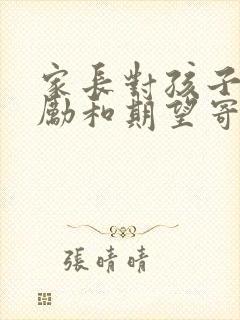 家長對孩子
勵和期望寄
張晴晴